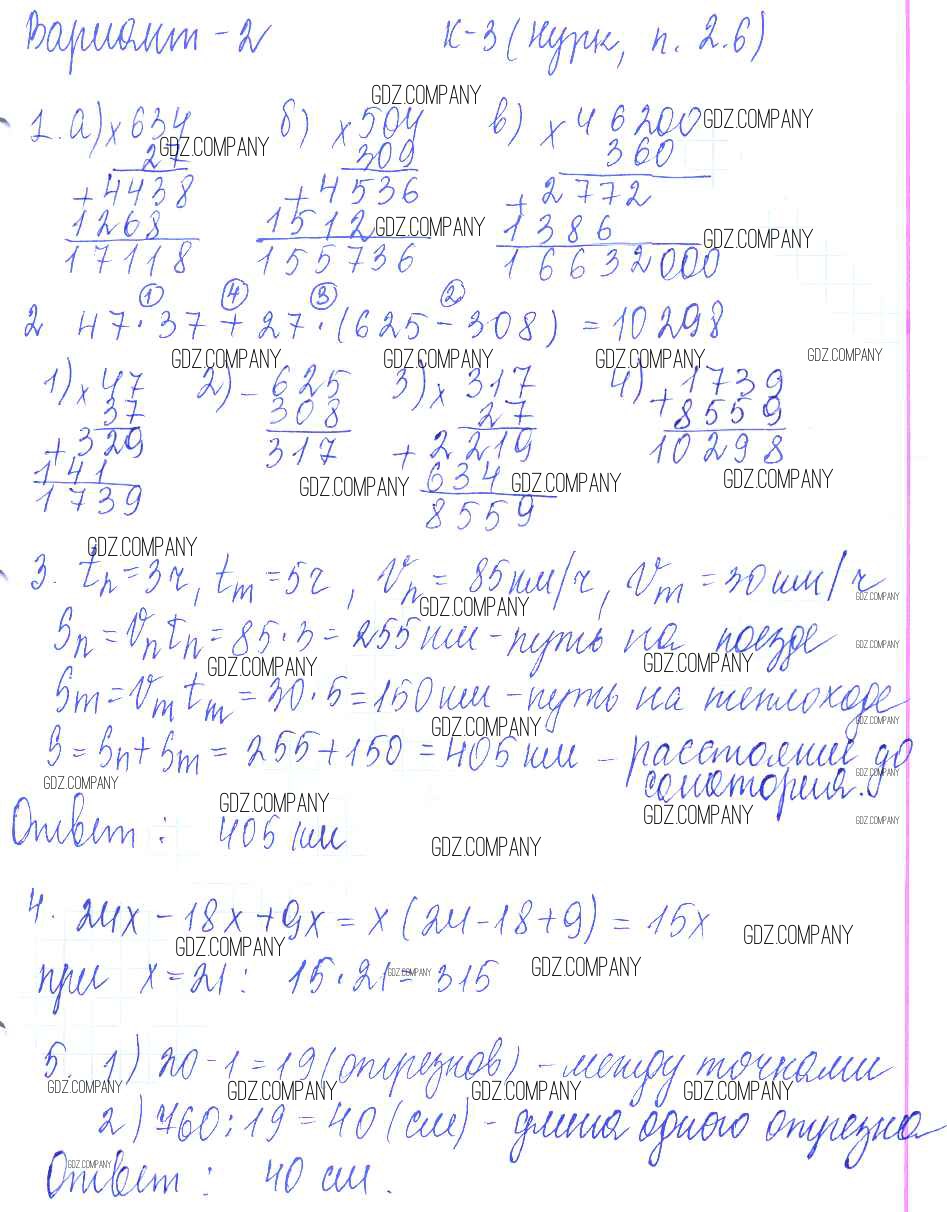 Вариант - 2 К-3 (Нурк, п. 2.6)
GDZ.COMPANY
1. а) × 634 б) × 504 в) × 46200 GDZ.COMPANY
27 GDZ.COMPANY 309 360
+ 4438 + 4536 + 2772
1268 1512 GDZ.COMPANY 1386 GDZ.COMPANY
17118 155736 16632000
① ④ ③ ②
2 47 · 37 + 27 · (625 - 308) = 10298
GDZ.COMPANY GDZ.COMPANY GDZ.COMPANY GDZ.COMPANY
1) × 47 2) - 625 3) × 317 4) + 1739
37 308 27 8559
+ 329 317 + 2219 10298
141 GDZ.COMPANY 634 GDZ.COMPANY GDZ.COMPANY
1739 8559
GDZ.COMPANY
3. tп = 3ч, tт = 5ч, Vп = 85 км/ч, Vт = 30 км/ч
GDZ.COMPANY GDZ.COMPANY
Sп = Vп tп = 85 · 3 = 255 км - путь на поезде GDZ.COMPANY
GDZ.COMPANY GDZ.COMPANY
Sт = Vт tт = 30 · 5 = 150 км - путь на теплоходе
GDZ.COMPANY GDZ.COMPANY
S = Sп + Sт = 255 + 150 = 405 км - расстояние до
GDZ.COMPANY санатория. GDZ.COMPANY
GDZ.COMPANY GDZ.COMPANY GDZ.COMPANY
Ответ : 405 км GDZ.COMPANY
4. 24x - 18x + 9x = x (24 - 18 + 9) = 15x GDZ.COMPANY
GDZ.COMPANY
при x = 21 : 15 · 21 = 315 GDZ.COMPANY GDZ.COMPANY
5. 1) 20 - 1 = 19 (отрезков) - между точками
GDZ.COMPANY GDZ.COMPANY GDZ.COMPANY GDZ.COMPANY
2) 760 : 19 = 40 (см) - длина одного отрезка
GDZ.COMPANY
Ответ : 40 см.